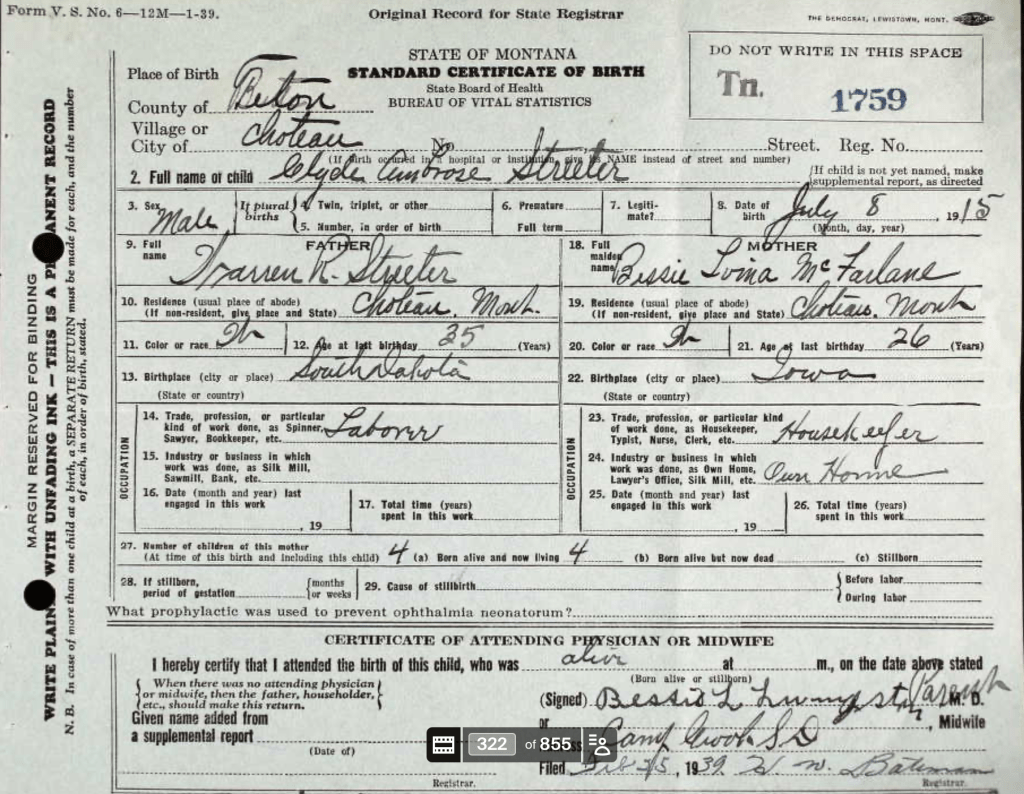 Form V. S. No. 6—12M—1-39.
Original Record for State Registrar
THE DEMOCRAT, LEWISTOWN, MONT.
STATE OF MONTANA
STANDARD CERTIFICATE OF BIRTH
State Board of Health
BUREAU OF VITAL STATISTICS
DO NOT WRITE IN THIS SPACE
Tn. 1759
Place of Birth
County of Teton
Village or
City of Choteau No. Street. Reg. No.
(If birth occurred in a hospital or institution, give its NAME instead of street and number)
2. Full name of child Clyde Ambrose Streeter
{If child is not yet named, make
supplemental report, as directed
3. Sex Male
If plural births { 4. Twin, triplet, or other
5. Number, in order of birth
6. Premature
Full term
7. Legiti-
mate?
8. Date of
birth July 8, 1915
(Month, day, year)
FATHER
9. Full
name Warren R. Streeter
10. Residence (usual place of abode)
(If non-resident, give place and State) Choteau, Mont.
11. Color or race W
12. Age at last birthday 35 (Years)
13. Birthplace (city or place) South Dakota
(State or country)
OCCUPATION
14. Trade, profession, or particular
kind of work done, as Spinner,
Sawyer, Bookkeeper, etc. Laborer
15. Industry or business in which
work was done, as Silk Mill,
Sawmill, Bank, etc.
16. Date (month and year) last
engaged in this work
, 19
17. Total time (years)
spent in this work
MOTHER
18. Full
maiden
name Bessie Lvina McFarlane
19. Residence (usual place of abode)
(If non-resident, give place and State) Choteau, Mont
20. Color or race W
21. Age at last birthday 26 (Years)
22. Birthplace (city or place) Iowa
(State or country)
OCCUPATION
23. Trade, profession, or particular kind
of work done, as Housekeeper,
Typist, Nurse, Clerk, etc. Housekeeper
24. Industry or business in which
work was done, as Own Home,
Lawyer's Office, Silk Mill, etc. Own Home
25. Date (month and year) last
engaged in this work
, 19
26. Total time (years)
spent in this work
27. Number of children of this mother
(At time of this birth and including this child) 4 (a) Born alive and now living 4 (b) Born alive but now dead (c) Stillborn
28. If stillborn,
period of gestation {months
or weeks
29. Cause of stillbirth
{Before labor
During labor
What prophylactic was used to prevent ophthalmia neonatorum?
CERTIFICATE OF ATTENDING PHYSICIAN OR MIDWIFE
I hereby certify that I attended the birth of this child, who was alive at m., on the date above stated
(Born alive or stillborn)
{ When there was no attending physician
or midwife, then the father, householder,
etc., should make this return. }
(Signed) Bessie L Parent M. D.
or , Midwife
Camp Crook S D
Given name added from
a supplemental report
(Date of)
Registrar.
Filed Feb , 1939 Bateman
Registrar.
322 of 855
MARGIN RESERVED FOR BINDING
WRITE PLAINLY WITH UNFADING INK — THIS IS A PERMANENT RECORD
N. B. In case of more than one child at a birth, a SEPARATE RETURN must be made for each, and the number
of each, in order of birth, stated.